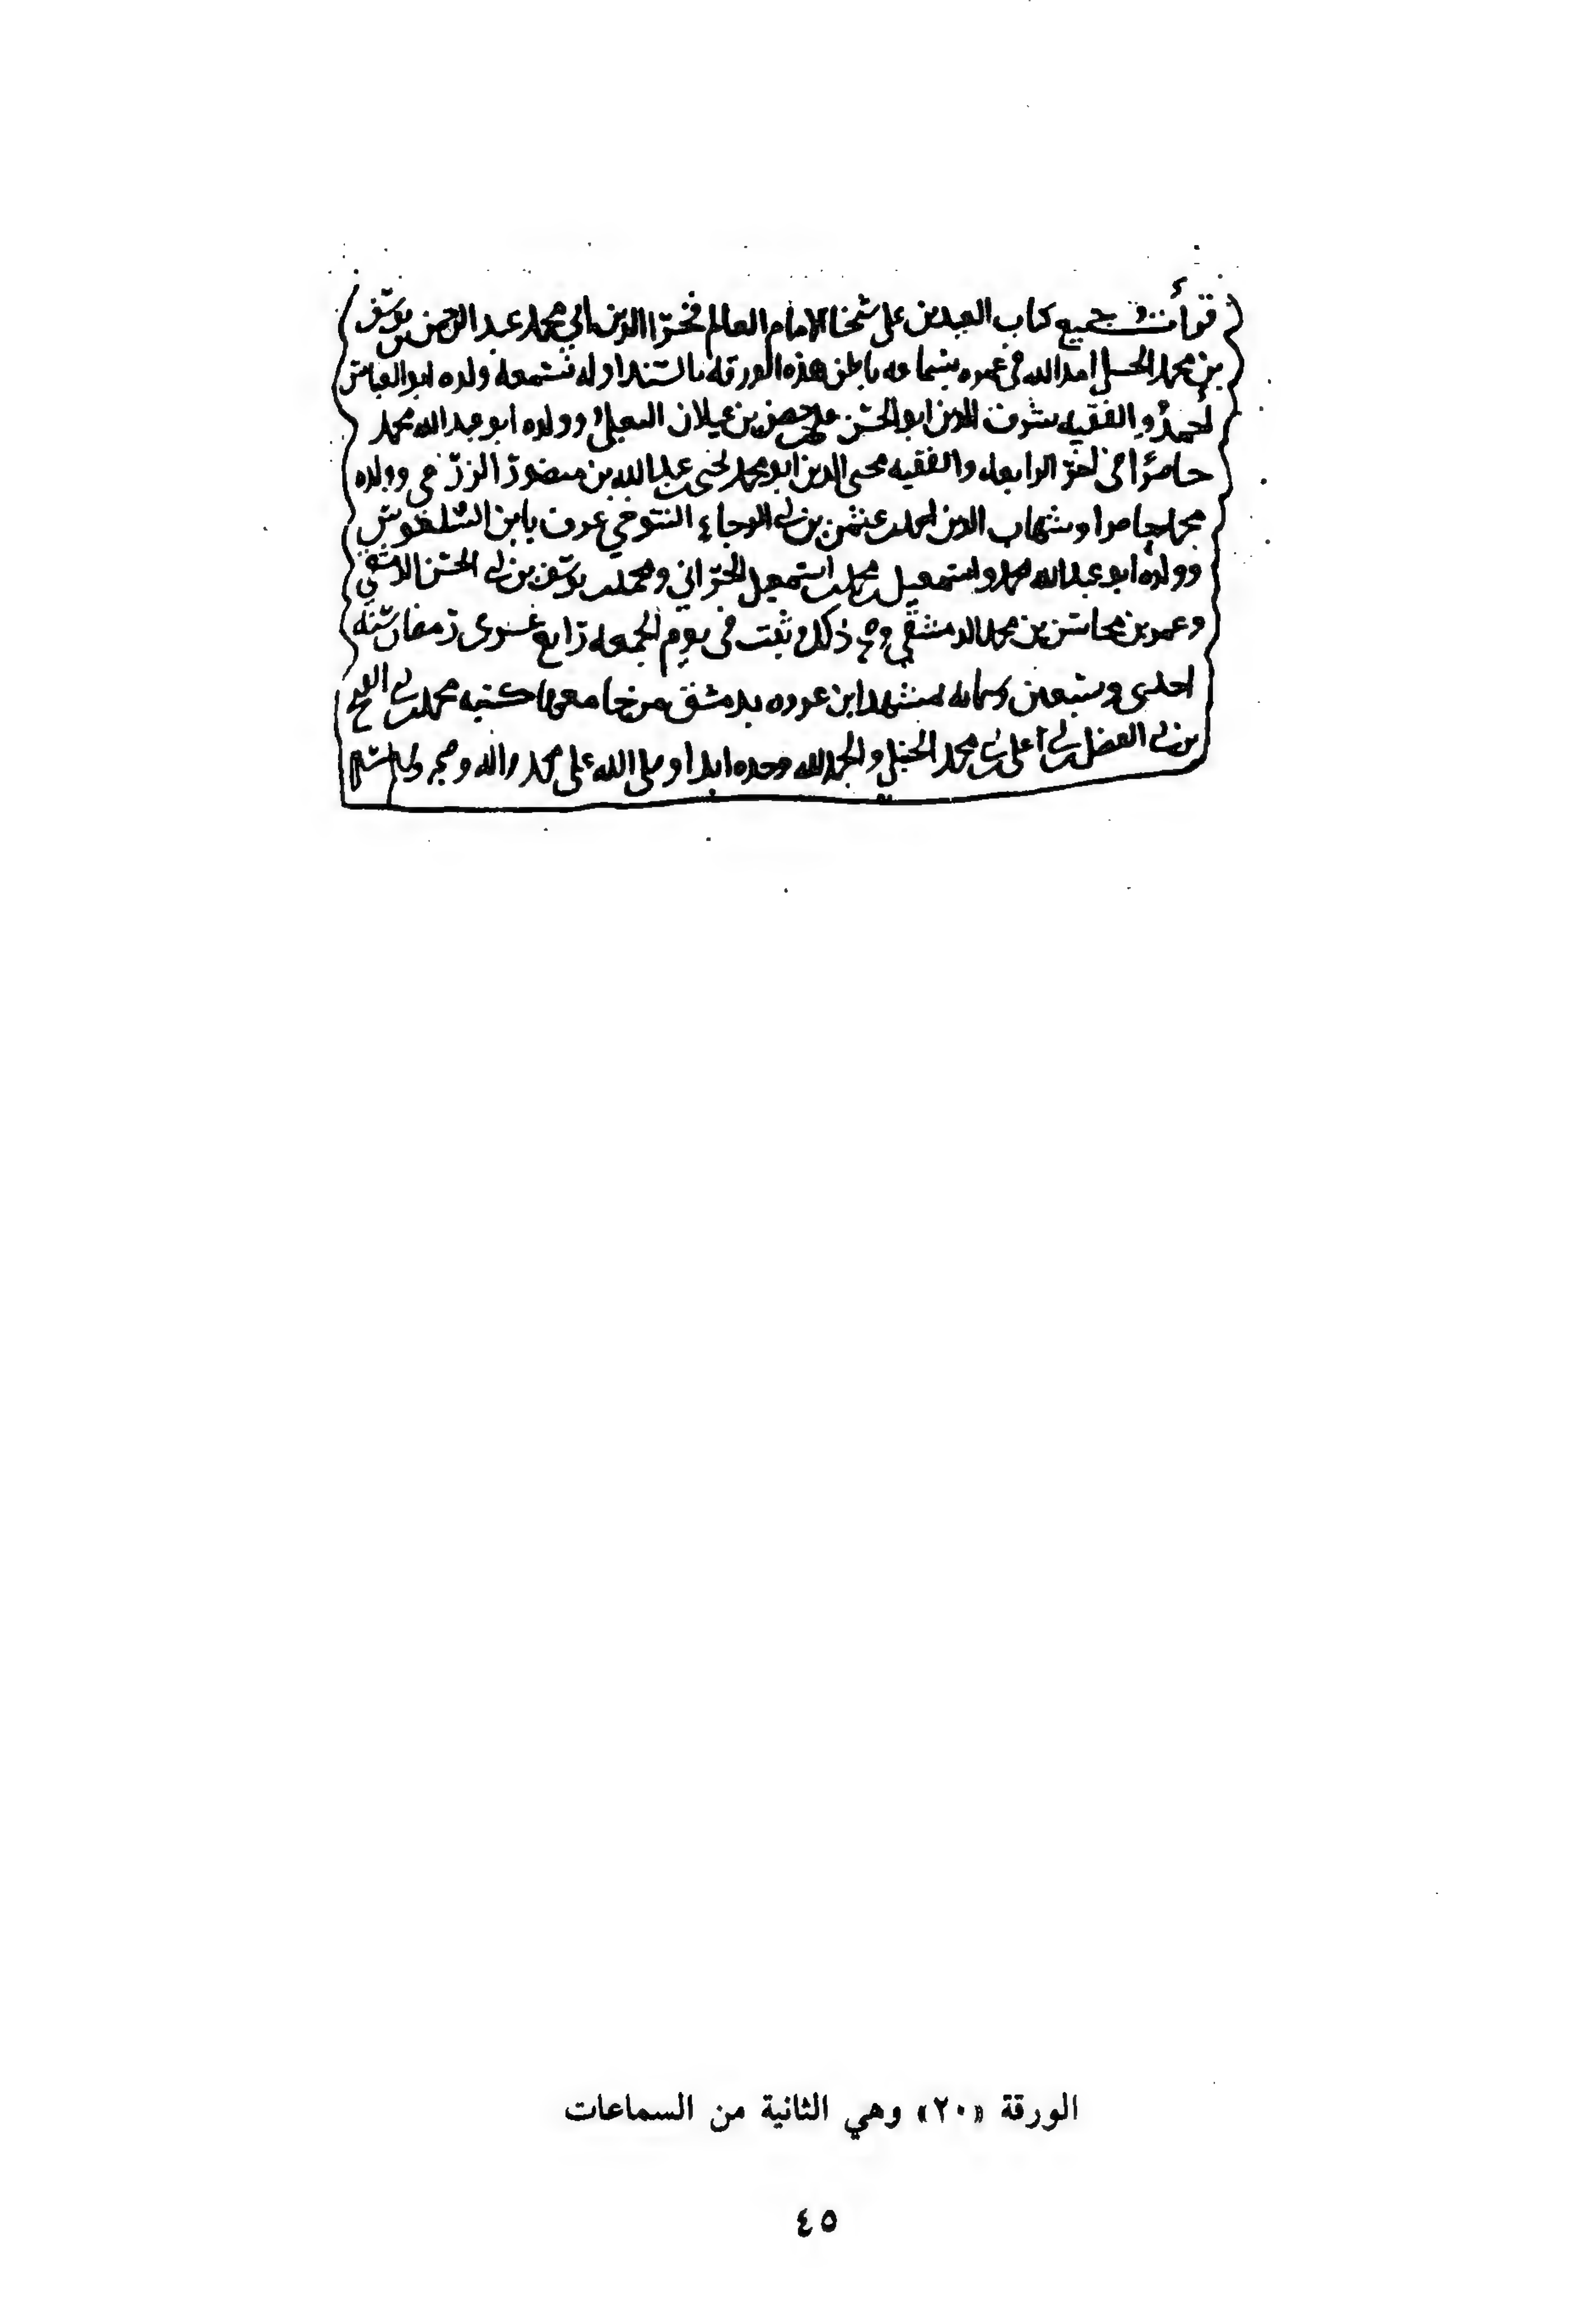 قرأت جميع كتاب العيدين على شيخنا الامام العالم فخر الدين ابي محمد عبد الرحمن بن يوسف
بن محمد الحنبلي امد الله في عمره بسماعه باطن هذه الورقة بالسند اوله فسمعه ولده ابو العباس
احمد والفقيه شرف الدين ابو الحسن علي بن حصن بن عيلان البعلي وولده ابو عبد الله محمد
حاضرا في اخر الرابعه والفقيه محيي الدين ابو محمد يحيى بن عبد الله بن منصور الزرعي وولده
محمد حاضرا وشهاب الدين احمد بن عثمن بن ابي الرجاء التنوخي عرف بابن السلعوس
وولده ابو عبد الله محمد واسمعيل بن محمد بن اسمعيل الحراني ومحمد بن يوسف بن ابي الحسن الدمشقي
وعمر بن محاسن بن محمد الدمشقي وصح ذلك وثبت في يوم الجمعه رابع عشرى رمضان سنه
احدى وسبعين وستمايه بمشهد ابن عروه بدمشق من جامعها كتبه محمد بن ابي الفتح
بن ابي الفضل بن ابي علي بن محمد الحنبلي والحمد لله وحده ابدا وصلى الله على محمد واله وصحبه وسلم
الورقة «٢٠» وهي الثانية من السماعات
٤٥